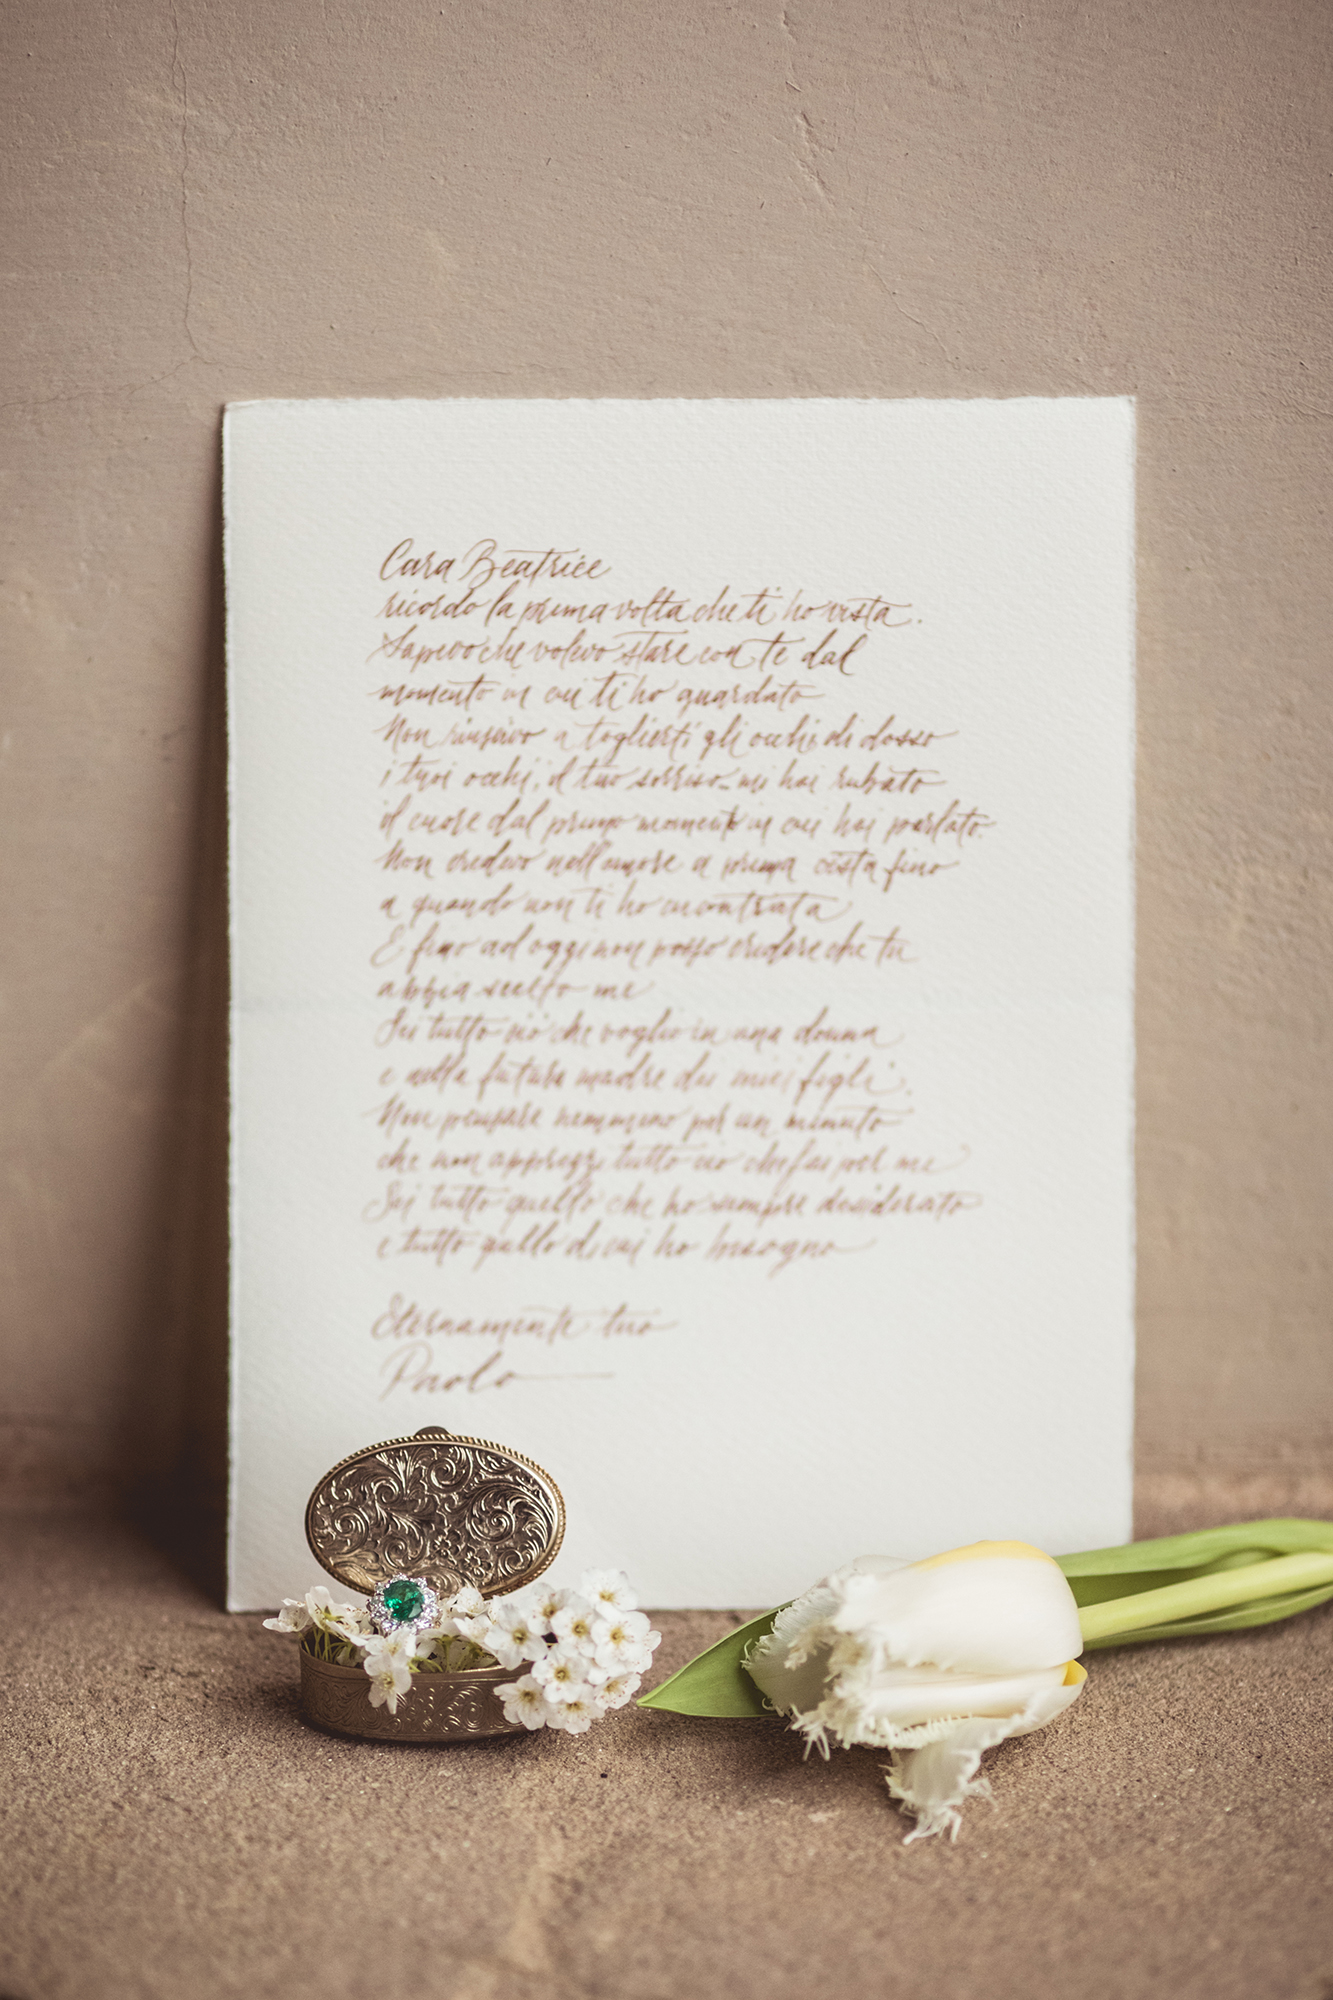 Cara Beatrice
ricordo la prima volta che ti ho vista.
Sapevo che volevo stare con te dal
momento in cui ti ho guardato
Non riuscivo a toglierti gli occhi di dosso
i tuoi occhi, il tuo sorriso mi hai rubato
il cuore dal primo momento in cui hai parlato.
Non credevo nell'amore a prima vista fino
a quando non ti ho incontrata
E fino ad oggi non posso credere che tu
abbia scelto me
Sei tutto ciò che voglio in una donna
e nella futura madre dei miei figli.
Non pensare nemmeno per un minuto
che non apprezzi tutto ciò che fai per me
Sei tutto quello che ho sempre desiderato
e tutto quello di cui ho bisogno
Eternamente tuo
Paolo